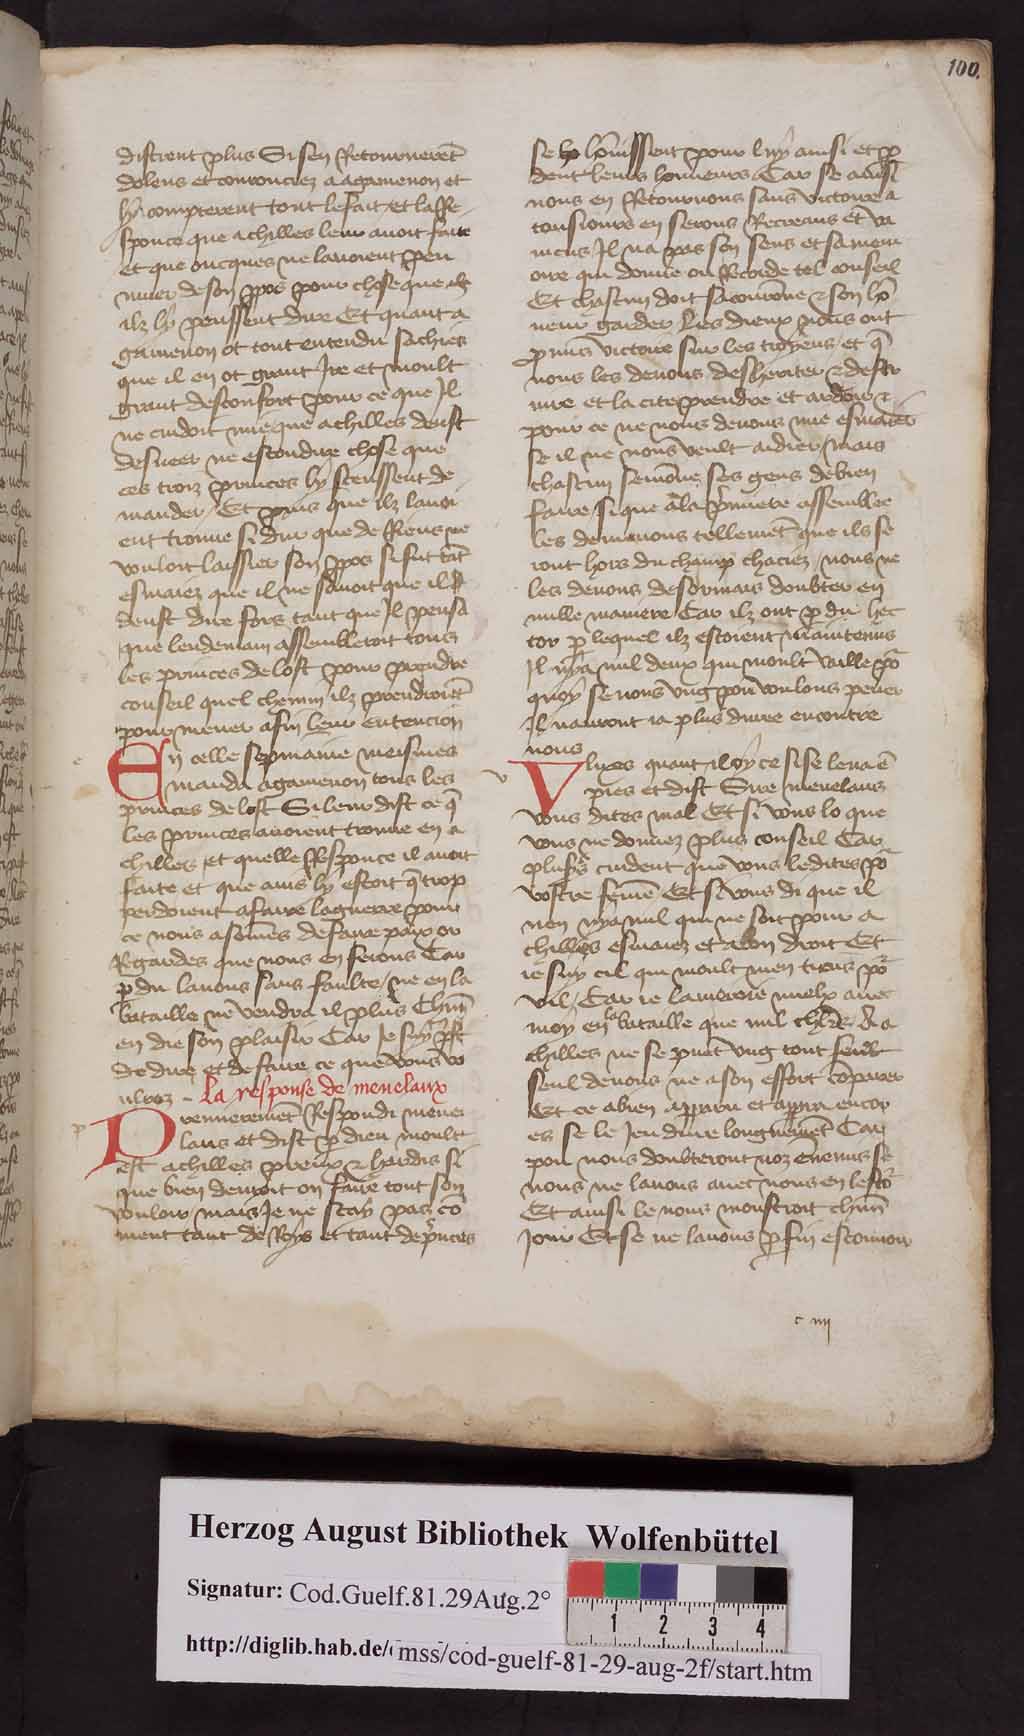 100.
distrent plus Si sen Retournerēt
dolens et courouciez a agamenon et
lȳ compterent tout le fait et la Re
sponce que achilles leur auoit faite
et que oncques ne lauoient peu
muer de son ꝓpos pour chose que
ilz lȳ peussent dire Et quant a
gamenon ot tout entendu sachies
que il en ot grant Ire et moult
grant desconfort pour ce que Il
ne cuidoit mie que achilles deust
desueer ne escondire chose que
ces troiz princes ly sceussent de
mander / Et puis que ilz lauoi
ent trouue si dur que de Riens ne
vouloit laissier son ꝓpos si fut tāt
esmaiez que il ne sauoit que il
deust dire fors tant que Il pensa
que lendemain assembleroit tous
les princes de lost pour prendre
conseil quel chemin ilz prendroiēt
pour mener a fin leur entencion
e En celle sepmaine meismes
manda agamenon tous les
princes de lost Si leur dist ce q̄
les princes auoient trouue en a
chilles / et quelle Responce il auoit
faite et que auis ly estoit q̄ trop
perdoient a faire la guerre pour
ce nous a semēs de faire paix or
Regardes que nous en ferons Car
ꝑdu lauons sans faulte / ne en la
bataille nē vendra il plus Chūn
en die son plaisir Car Je suy pst
de dire et de faire ce que vous vo
ulrez - La response de menelaux
p Premieremēt Respondi mene
laus et dist ꝑ dieu moult
est achilles preux ⁊ hardis si
que bien deuroit on faire tout son
vouloir mais Je ne scay pas cō
ment tant de Roys et tant de princes
se hōnissent pour luy ainsi et ꝑ
dent leurs honneurs Car se ainsi
nous en Retournons sans victoire a
tousiours en serons Recreans et va
incus Il na pas son sens et sa mem
oire qui donne ou Recorde tel conseil
Et chascun doit sa couronne ⁊ son hō
neur garder Les dieux nous ont
ꝓmis victoire sur les troyens / et q̄
nous les deuons desheriter ⁊ destr
uire et la cite prendre et ardoir ⁊
pour ce ne nous deuons mie esmaier
se il ne nous veult aidier / mais
chascun semōne ses gens de bien
faire / si que a la p̄miere assemblee
les demenons tellemēt que ils se
ront hors du champ chaciez / nous ne
les deuons desormais doubter en
nulle maniere Car ilz ont ꝑdu hec
tor ꝑ lequel ilz estoient maintenus
Il ny a nul deux qui moult vaille pō
quoy se nous vng pou voulons pener
Il nauront ia plus duree encontre
nous
v Vlixes quant il oy ce si se leua ē
pies et dist Sire menelaus
vous dites mal Et si vous lo que
vous ne donnez plus conseil Car
plusrs cuident que vous le dites pō
vostre femē Et si vous di que il
nen ny a nul qui ne soit pour a
chilles esmaiez et a bon droit Et
ie suy cil qui moult men tiens pō
vil / Car ie lameroie mielx auec
moy en la bataille que mil chlr̄s A a
chilles ne se puet vng tout seul
seul deuons ne a son effort cōparer
Et ce a bien apparu et apparra encor
es se le Jeu dure longuemēt Car
pou nous doubteront noz enemis se
nous ne lauons auec nous en lestor
Et ainsi le nous monstroit chūn
Jour Et se ne lauons ꝑ fin esconuour
c iiij
Herzog August Bibliothek Wolfenbüttel
Signatur: Cod.Guelf.81.29Aug.2°
http://diglib.hab.de/mss/cod-guelf-81-29-aug-2f/start.htm
1 2 3 4